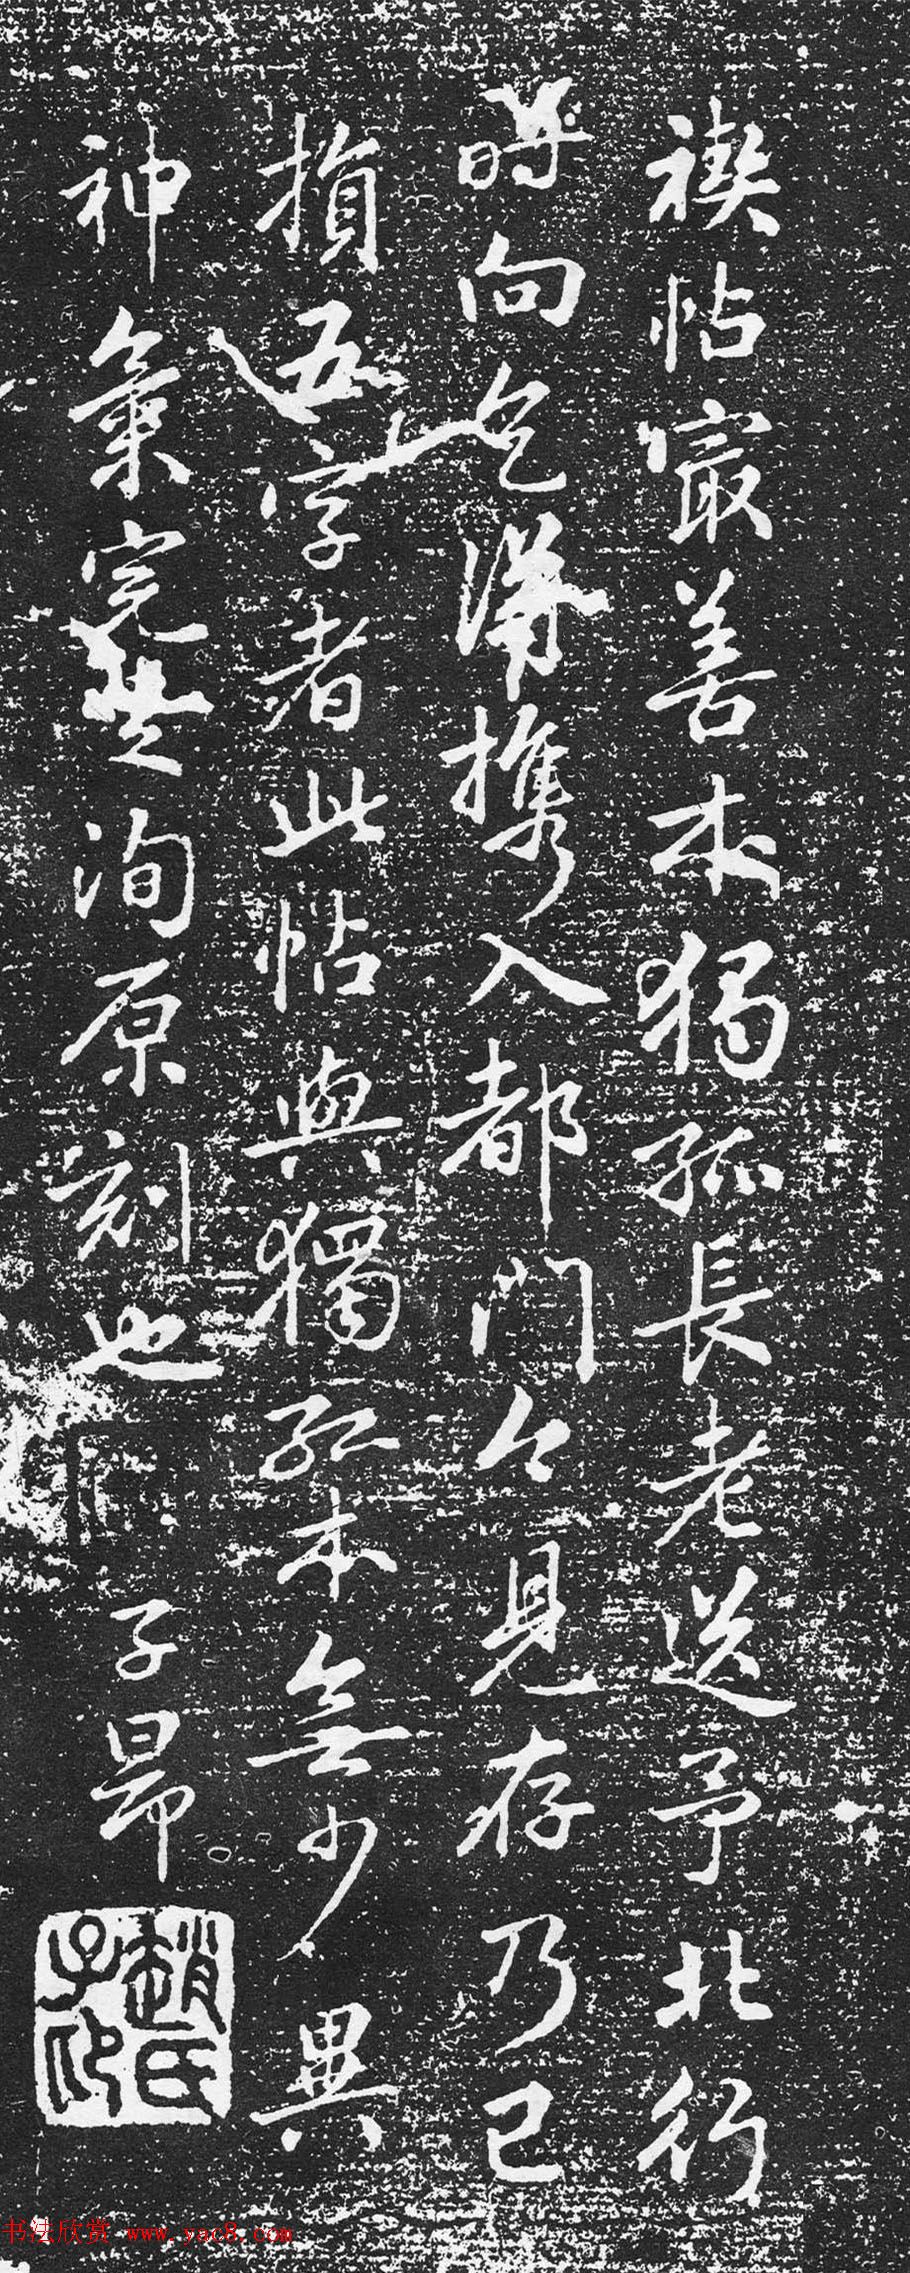 禊帖㝡善本獨孤長老送予北行
時向之乞得攜入都門今見存乃已
損五字者此帖與獨孤本無少異
神氣完整洵原刻也
子昂
趙氏子印
书法欣赏 www.yac8.com